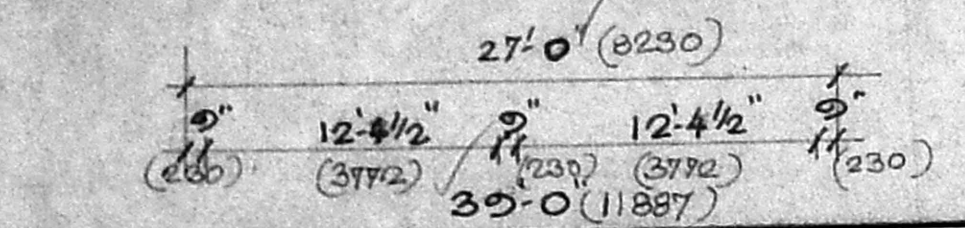 27'-0" (8230)
9" 12'-4 1/2" 9" 12'-4 1/2" 9"
(230) (3772) (230) (3772) (230)
39'-0" (11887)